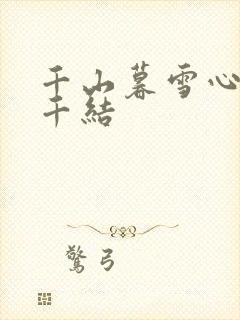 千山暮雪心
千結
驚弓